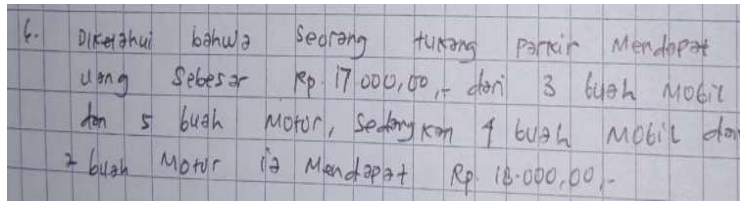 6. Diketahui bahwa seorang tukang parkir mendapat
uang sebesar Rp. 17 000,00,- dari 3 buah mobil
dan 5 buah motor, sedangkan 4 buah mobil dan
2 buah motor ia mendapat Rp. 18.000,00,-